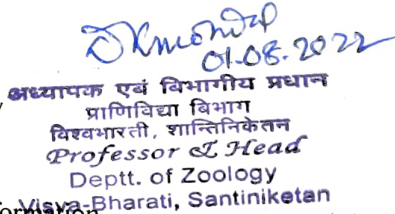 01.08.2022
अध्यापक एवं विभागीय प्रधान
प्राणिविद्या विभाग
विश्वभारती, शान्तिनिकेतन
Professor & Head
Deptt. of Zoology
Visva-Bharati, Santiniketan